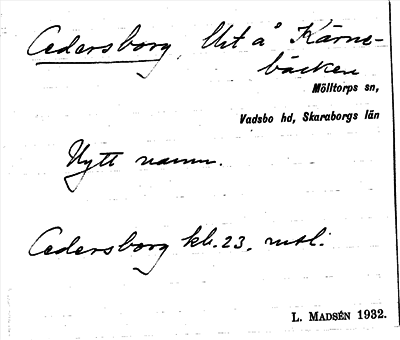 Cedersborg, Utt å Kärne-
bäcken
Mölltorps sn,
Vadsbo hd, Skaraborgs län
Nytt namn.
Cedersborg kb. 23. mtl.
L. MADSÉN 1932.